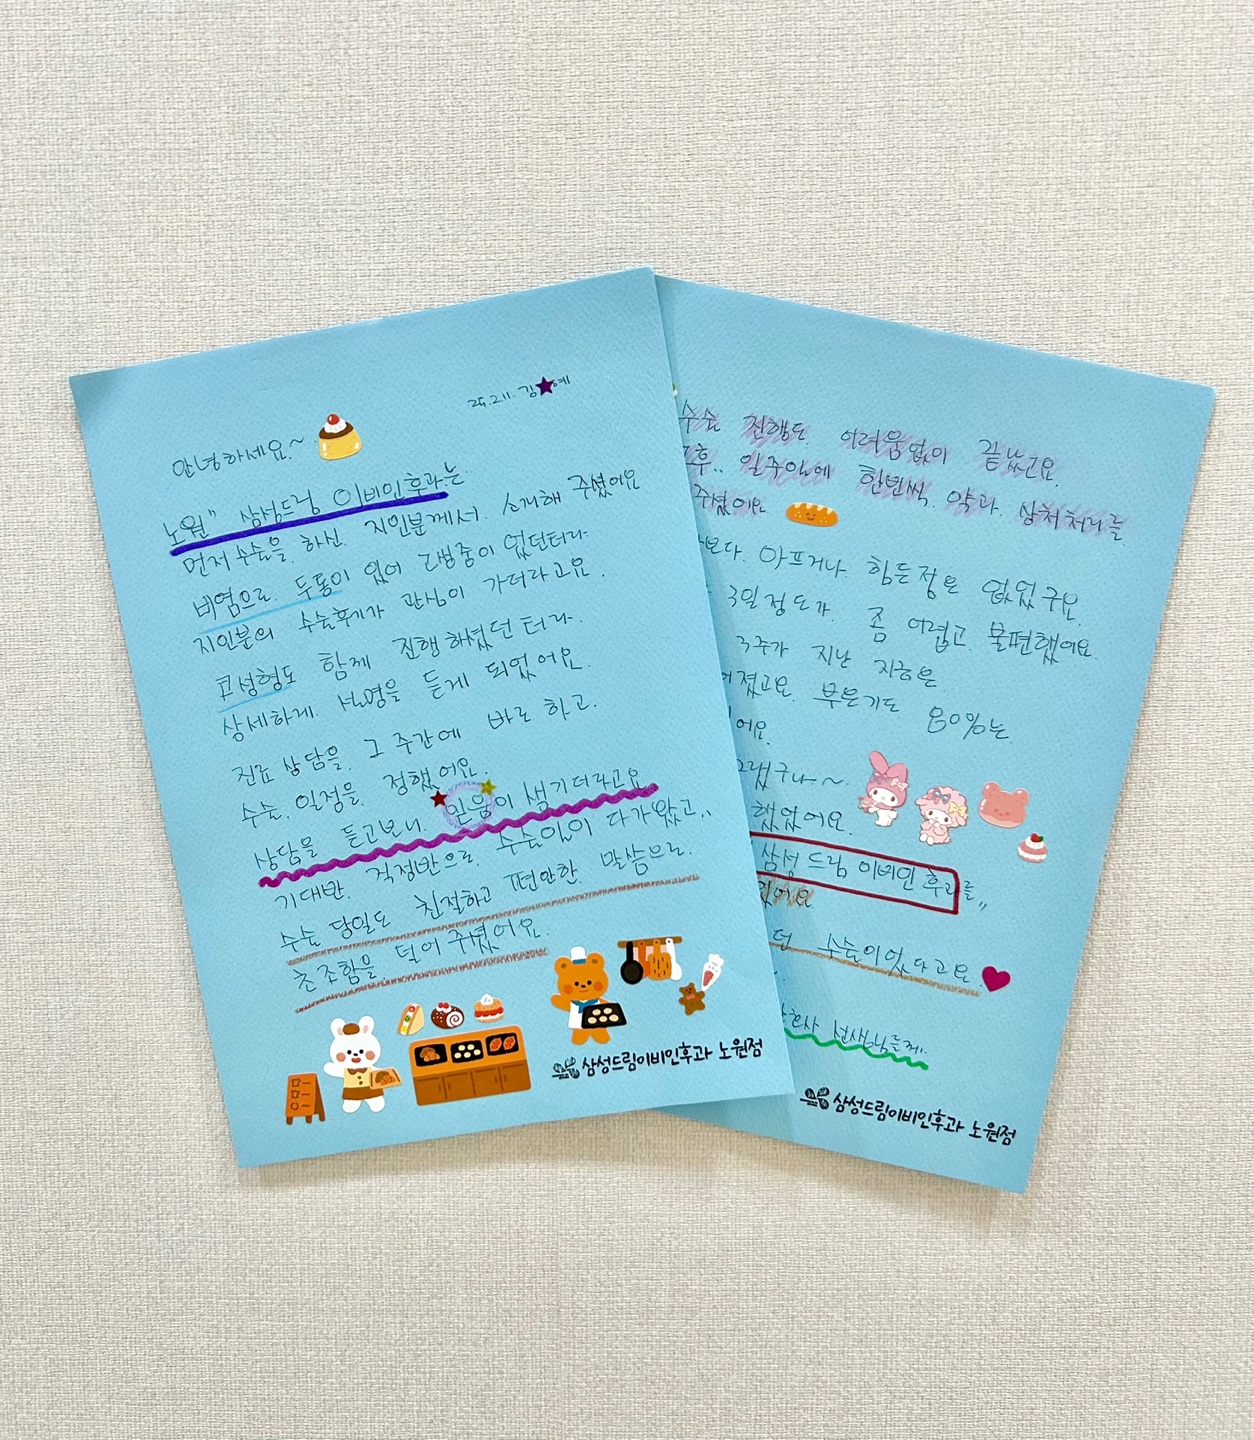 25.2.11. 김★예
안녕하세요~
노원" 삼성드림 이비인후과는
먼저 수술을 하신 지인분께서 소개해 주셨어요
비염으로 두통이 있어 고생중이 었던터라
지인분의 수술후기가 관심이 가더라고요.
코성형도 함께 진행하셨던 터라
상세하게 설명을 듣게 되었어요.
진료상담을 그 주간에 바로 하고.
수술 일정을 정했어요.
상담을 듣고보니 믿음이 생기더라고요
기대반 걱정반으로 수술일이 다가왔고,,
수술 당일도 친절하고 편안한 말씀으로
초조함을 덜어 주셨어요.
삼성드림이비인후과 노원점
수술 진행도 어려움없이 끝났고요
후.. 일주일에 한번씩 약과 상처처리를
주셨어요
보다 아프거나 힘든점은 없었구요
3일정도가 좀 어렵고 불편했어요
3주가 지난 지금은
졌고요 부은기도 80%는
어요.
그랬구나~
했었어요.
삼성드림 이비인후과를,,
었어요
던 수술이었다고요
선생님들께
삼성드림이비인후과 노원점